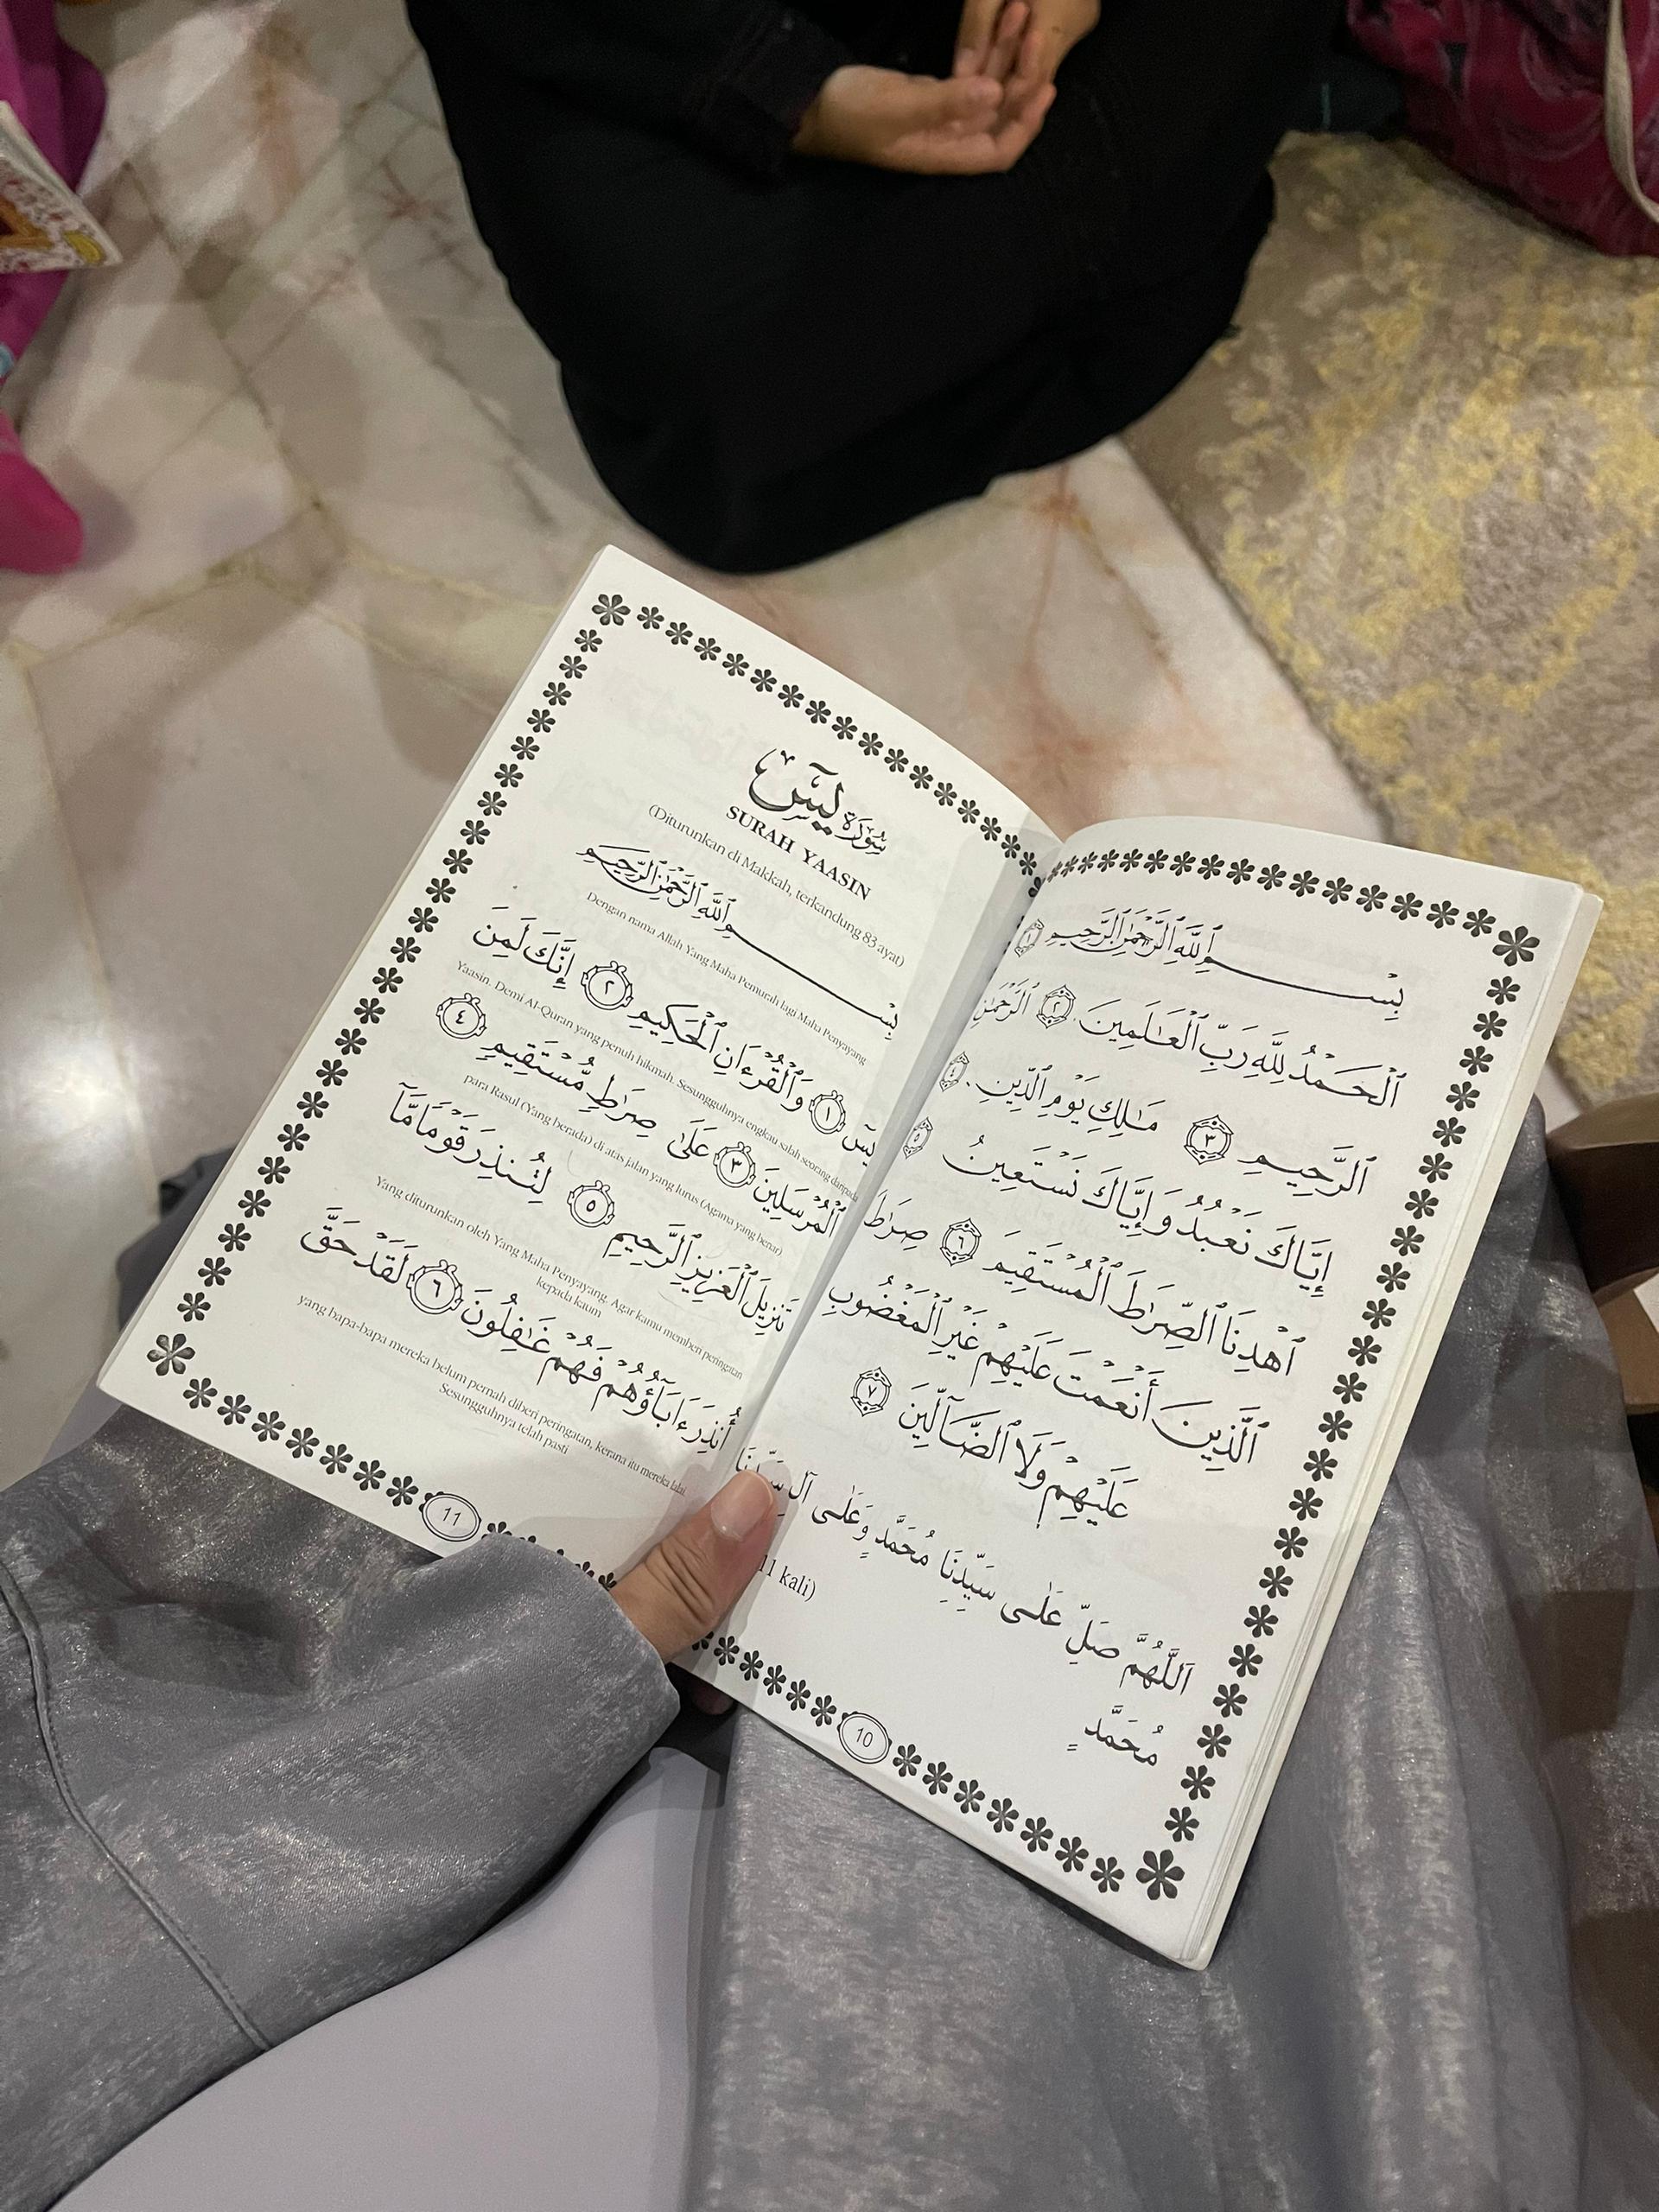 بِسْمِ ٱللَّهِ ٱلرَّحْمَٰنِ ٱلرَّحِيمِ ١
ٱلْحَمْدُ لِلَّهِ رَبِّ ٱلْعَٰلَمِينَ ٢ ٱلرَّحْمَٰنِ
ٱلرَّحِيمِ ٣ مَٰلِكِ يَوْمِ ٱلدِّينِ ٤
إِيَّاكَ نَعْبُدُ وَإِيَّاكَ نَسْتَعِينُ ٥
ٱهْدِنَا ٱلصِّرَٰطَ ٱلْمُسْتَقِيمَ ٦ صِرَٰطَ
ٱلَّذِينَ أَنْعَمْتَ عَلَيْهِمْ غَيْرِ ٱلْمَغْضُوبِ
عَلَيْهِمْ وَلَا ٱلضَّآلِّينَ ٧
اَللَّهُمَّ صَلِّ عَلَى سَيِّدِنَا مُحَمَّدٍ وَعَلَى آلِ سَيِّدِنَا
مُحَمَّدٍ
11 kali)
10
سُورَةُ يسٓ
SURAH YAASIN
(Diturunkan di Makkah, terkandung 83 ayat)
بِسْمِ ٱللَّهِ ٱلرَّحْمَٰنِ ٱلرَّحِيمِ
Dengan nama Allah Yang Maha Pemurah lagi Maha Penyayang
يسٓ ١ وَٱلْقُرْءَانِ ٱلْحَكِيمِ ٢ إِنَّكَ لَمِنَ
Yaasin. Demi Al-Quran yang penuh hikmah. Sesungguhnya engkau salah seorang daripada
ٱلْمُرْسَلِينَ ٣ عَلَىٰ صِرَٰطٍ مُّسْتَقِيمٍ ٤
para Rasul (Yang berada) di atas jalan yang lurus (Agama yang benar)
تَنزِيلَ ٱلْعَزِيزِ ٱلرَّحِيمِ ٥ لِتُنذِرَ قَوْمًا مَّآ
Yang diturunkan oleh Yang Maha Penyayang. Agar kamu memberi peringatan
kepada kaum
أُنذِرَ ءَابَآؤُهُمْ فَهُمْ غَٰفِلُونَ ٦ لَقَدْ حَقَّ
yang bapa-bapa mereka belum pernah diberi peringatan, kerana itu mereka lalai.
Sesungguhnya telah pasti
11